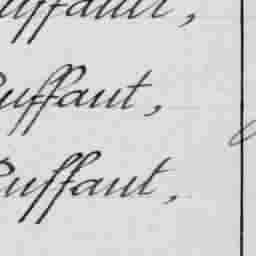 uffaut,
uffaut,
uffaut,